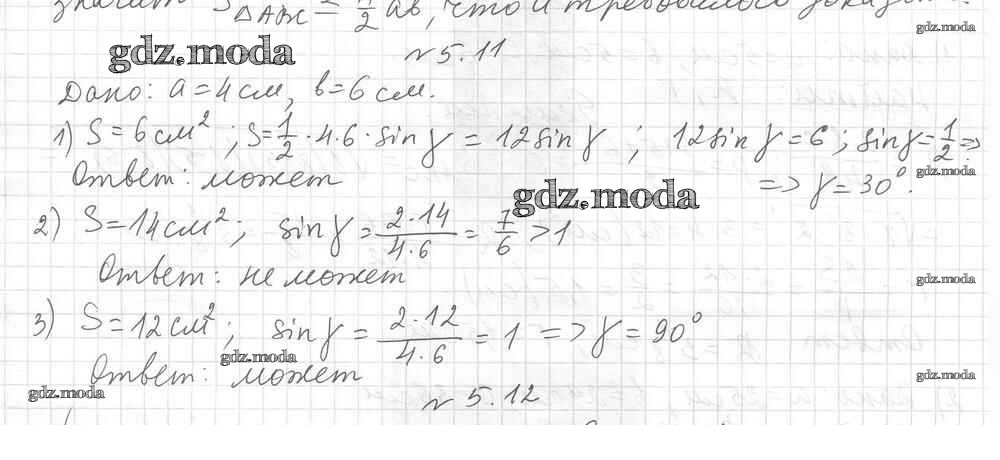 значит S△ABC = 1/2 ab, что и требовалось
gdz.moda
gdz.moda
№ 5.11
Дано: a = 4 см, b = 6 см.
1) S = 6 см²; S = 1/2 · 4 · 6 · sin γ = 12 sin γ; 12 sin γ = 6; sin γ = 1/2 =>
gdz.moda
Ответ: может => γ = 30°.
gdz.moda
2) S = 14 см²; sin γ = 2·14/4·6 = 7/6 > 1
Ответ: не может
gdz.moda
3) S = 12 см²; sin γ = 2·12/4·6 = 1 => γ = 90°
gdz.moda
Ответ: может
gdz.moda
gdz.moda
№ 5.12